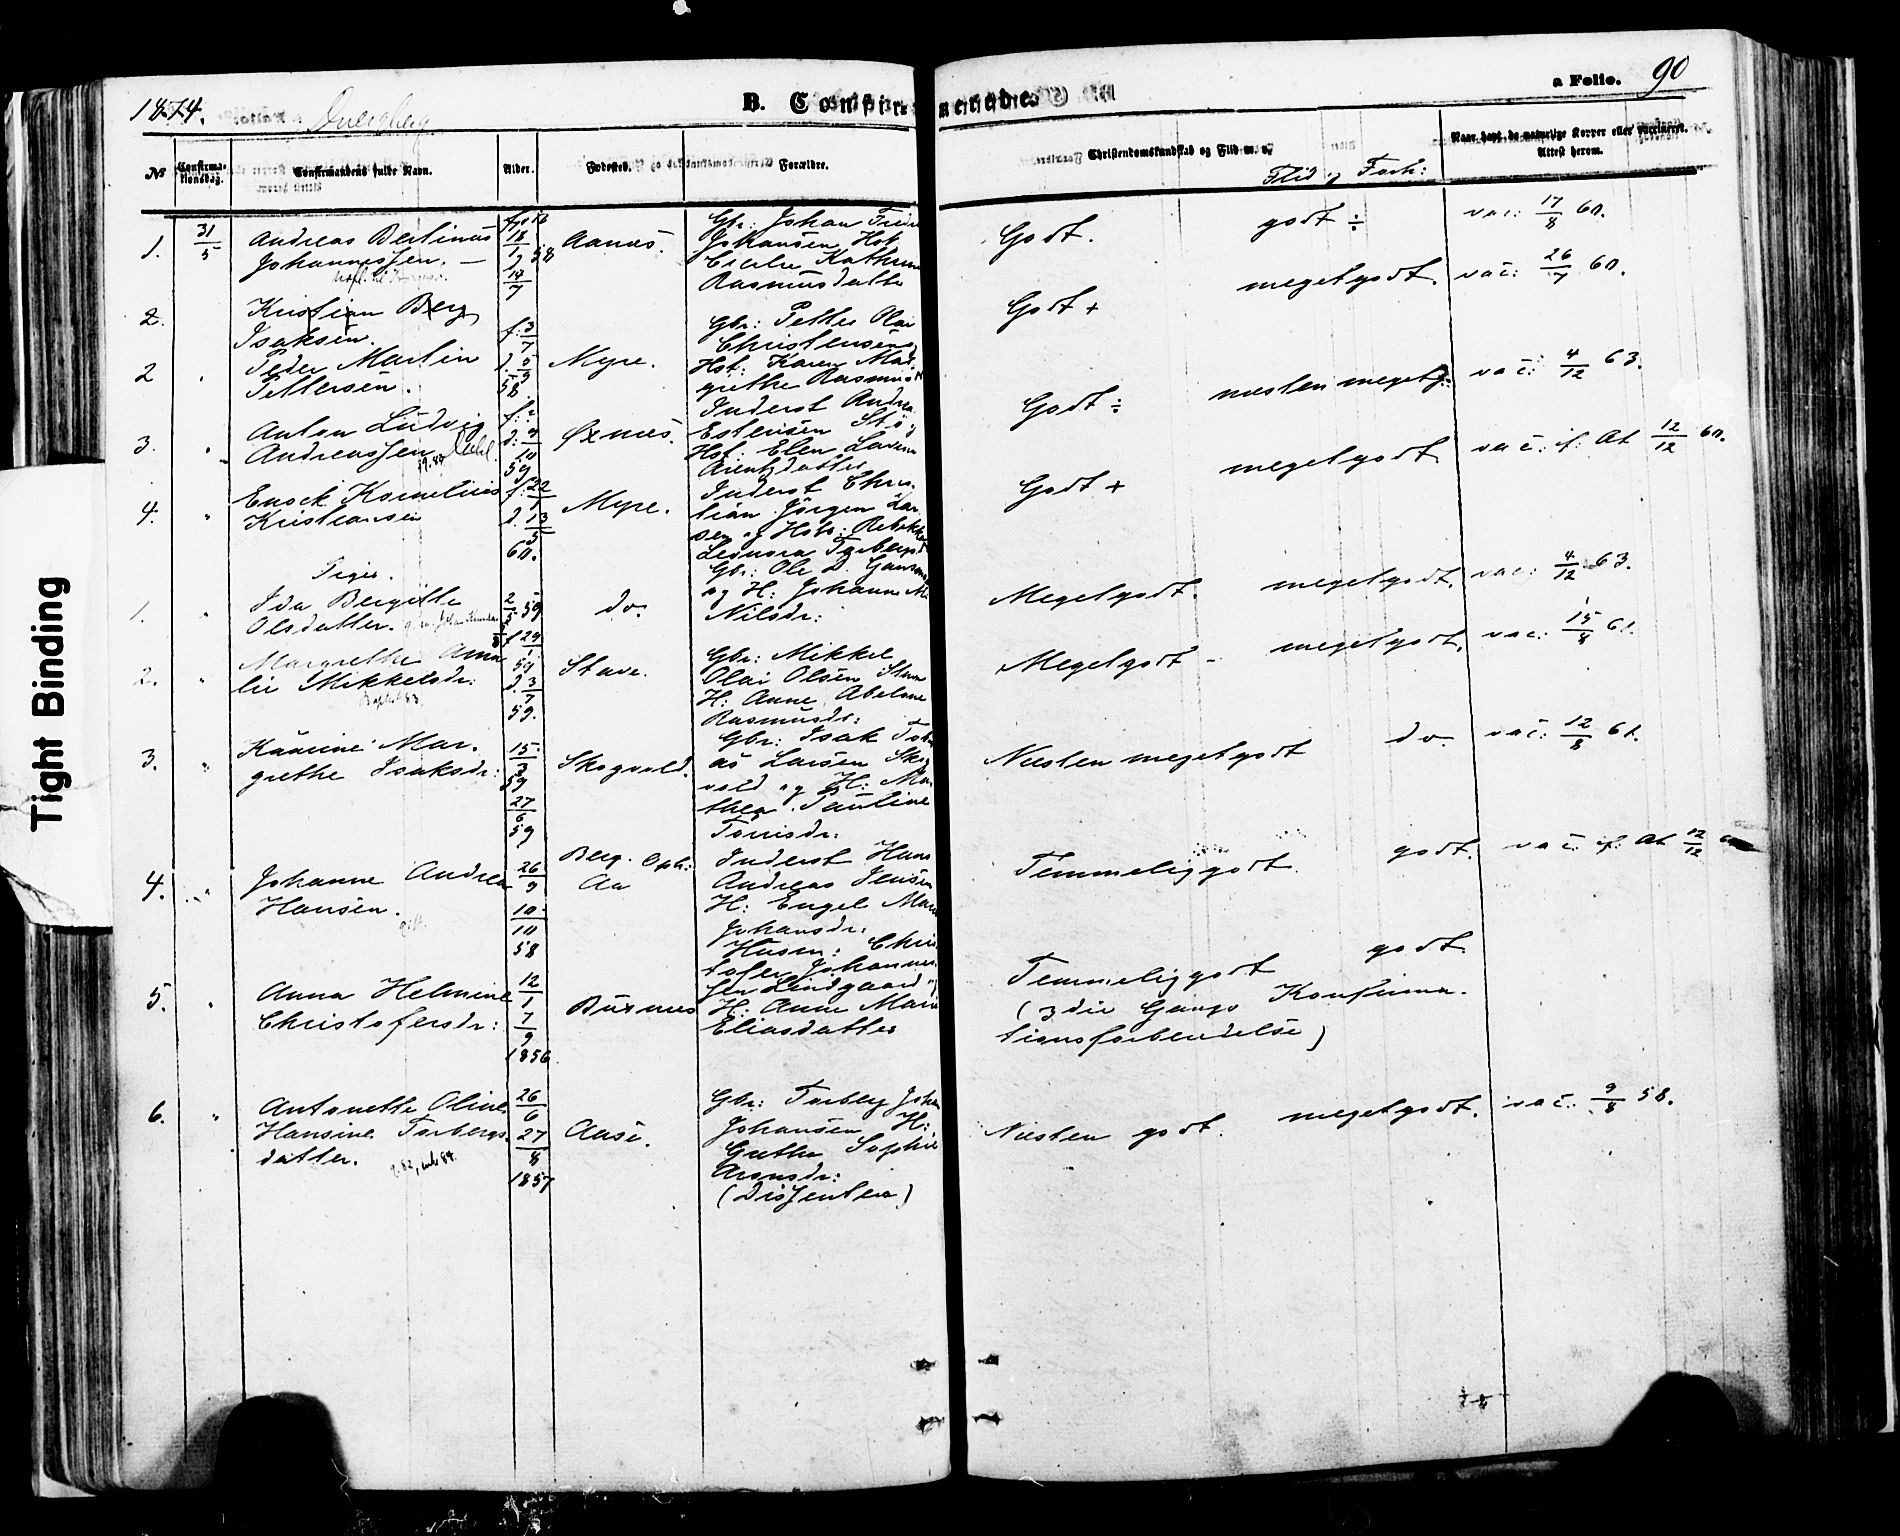 Tight Binding
1874.
Dverberg
B. Confirmerede.
a Folio. 90
No
Confirmationsdag.
Confirmandens fulde Navn.
Alder.
Fødested.
Forældre.
Christendomskundskab og Flid m. v.
Flid og Forh:
Naar havt de naturlige Kopper eller vaccineret.
Attest herom.
1. 31/5 Andreas Bertinus
Johannessen. —
18/1 58
17/7
Aanes.
Gbr: Johan
Johansen Hst
Kathrine
Rasmusdatter
Godt. godt ÷ vac: 17/8 60.
2. Kristian Berg
Isaksen.
Godt + megetgodt. vac: 26/7 60.
2 " Peder Martin
Pettersen.
f. 3/7
d. 5/9
58
Myre.
Gbr: Petter Olai
Christensen
Hst: Karen Mar
grethe Rasmusd
Godt ÷ næsten megetg: vac: 4/12 63.
3. " Anton Ludvig
Andreassen
f:
d. 9/10
59
Øxnes.
Inderst Andrea
Estensen
Hst: Elen
Arentzdatter
Godt + megetgodt vac: if: At 12/12 60.
4. " Enock Kornelius
Kristiansen
f. 22/1
d. 13/5
60.
Myre.
Inderst Chris
tian Jörgen Lar
sen og Hstr: Rebekka
Leonora Torbergsd
Piger.
1. " Ida Bergitte
Olsdatter.
2/5 59
do.
Gbr: Ole D.
og H: Johanne Ma
Nilsdr:
Megetgodt. megetgodt. vac: 4/12 63.
2. " Margrethe Ama
lie Mikkelsdr:
f 29/1
59
d. 3/7
59.
Stave.
Gbr: Mikkel
Olai Olsen
H: Anne Abelone
Rasmusdr:
Megetgodt - megetgodt. vac: 15/8 61.
3. " Kaarine Mar.
grethe Isaksdr:
15/3
59
27/6
59
Skogvold.
Gbr: Isak Tob
as Larsen Skog
vold og H: Mar
thea Pauline
Tönisdr:
Næsten megetgodt do. vac: 12/8 61.
4. " Johanne Andrea
Hansen.
gift.
26/9
10/10
58
Berg. Oph:
Aa
Inderst Hans
Andreas Jensen
H: Engel Mar
Johansdr:
Temmeliggodt. godt. vac. if. At 12/12
5. " Anna Helmine
Christofersdr:
12/1
7/9
1856.
Buxnes
Husm: Chris
tofer Johannes
sen Lindgaard og
H: Anne Marie
Eliasdatter
Temmeliggodt godt.
(3die Gangs Konfirma-
tionsforberedelse)
6. " Antonette Oline
Hansine Torbergs-
datter.
26/6
27/8
1857
Aase.
Gbr: Torberg Johan
Johansen H:
Grethe Sophie
Aronsdr:
(Dissenter)
Næsten godt. megetgodt. vac: 9/8 58.